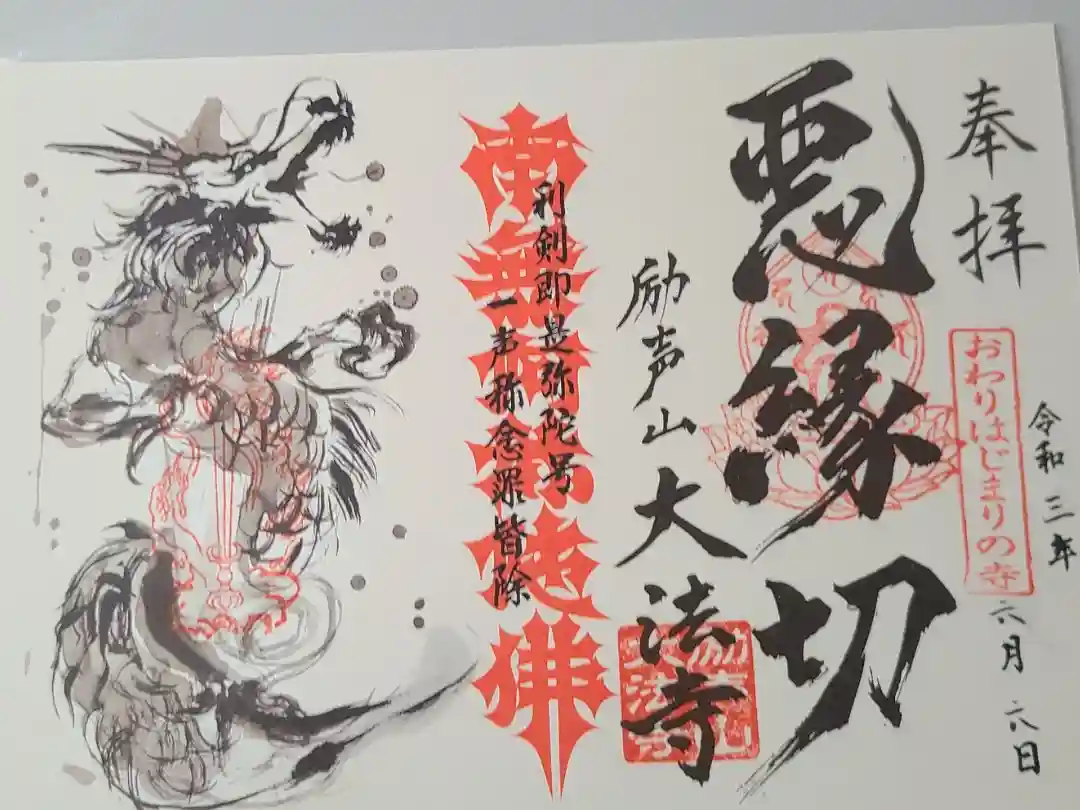 奉拝
令和三年
六月六日
おわりはじまりの寺
悪縁切
励声山大法寺
利剣即是弥陀号
一声称念罪皆除
南無阿弥陀佛